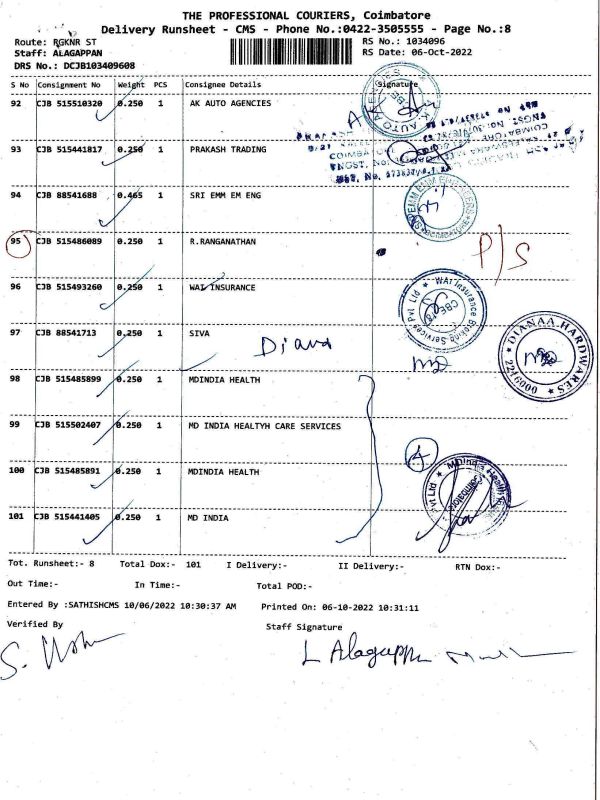 THE PROFESSIONAL COURIERS, Coimbatore
Delivery Runsheet - CMS - Phone No.:0422-3505555 - Page No.:8
Route: RGKNR ST
RS No.: 1034096
Staff: ALAGAPPAN
RS Date: 06-Oct-2022
DRS No.: DCJB103409608
S No Consignment No Weight PCS Consignee Details Signature
92 CJB 515510320 0.250 1 AK AUTO AGENCIES
93 CJB 515441817 0.250 1 PRAKASH TRADING
94 CJB 88541688 0.465 1 SRI EMM EM ENG
95 CJB 515486089 0.250 1 R.RANGANATHAN P/S
96 CJB 515493260 0.250 1 WAI INSURANCE
WAI Insurance Broking Services Pvt Ltd
97 CJB 88541713 0.250 1 SIVA
Diana
DIANAA HARDWARES 2216000
98 CJB 515485899 0.250 1 MDINDIA HEALTH
99 CJB 515502407 0.250 1 MD INDIA HEALTYH CARE SERVICES
4
100 CJB 515485891 0.250 1 MDINDIA HEALTH
MDIndia Health Pvt Ltd Coimbatore
101 CJB 515441405 0.250 1 MD INDIA
Tot. Runsheet:- 8 Total Dox:- 101 I Delivery:- II Delivery:- RTN Dox:-
Out Time:- In Time:- Total POD:-
Entered By :SATHISHCMS 10/06/2022 10:30:37 AM Printed On: 06-10-2022 10:31:11
Verified By Staff Signature
L Alagappan